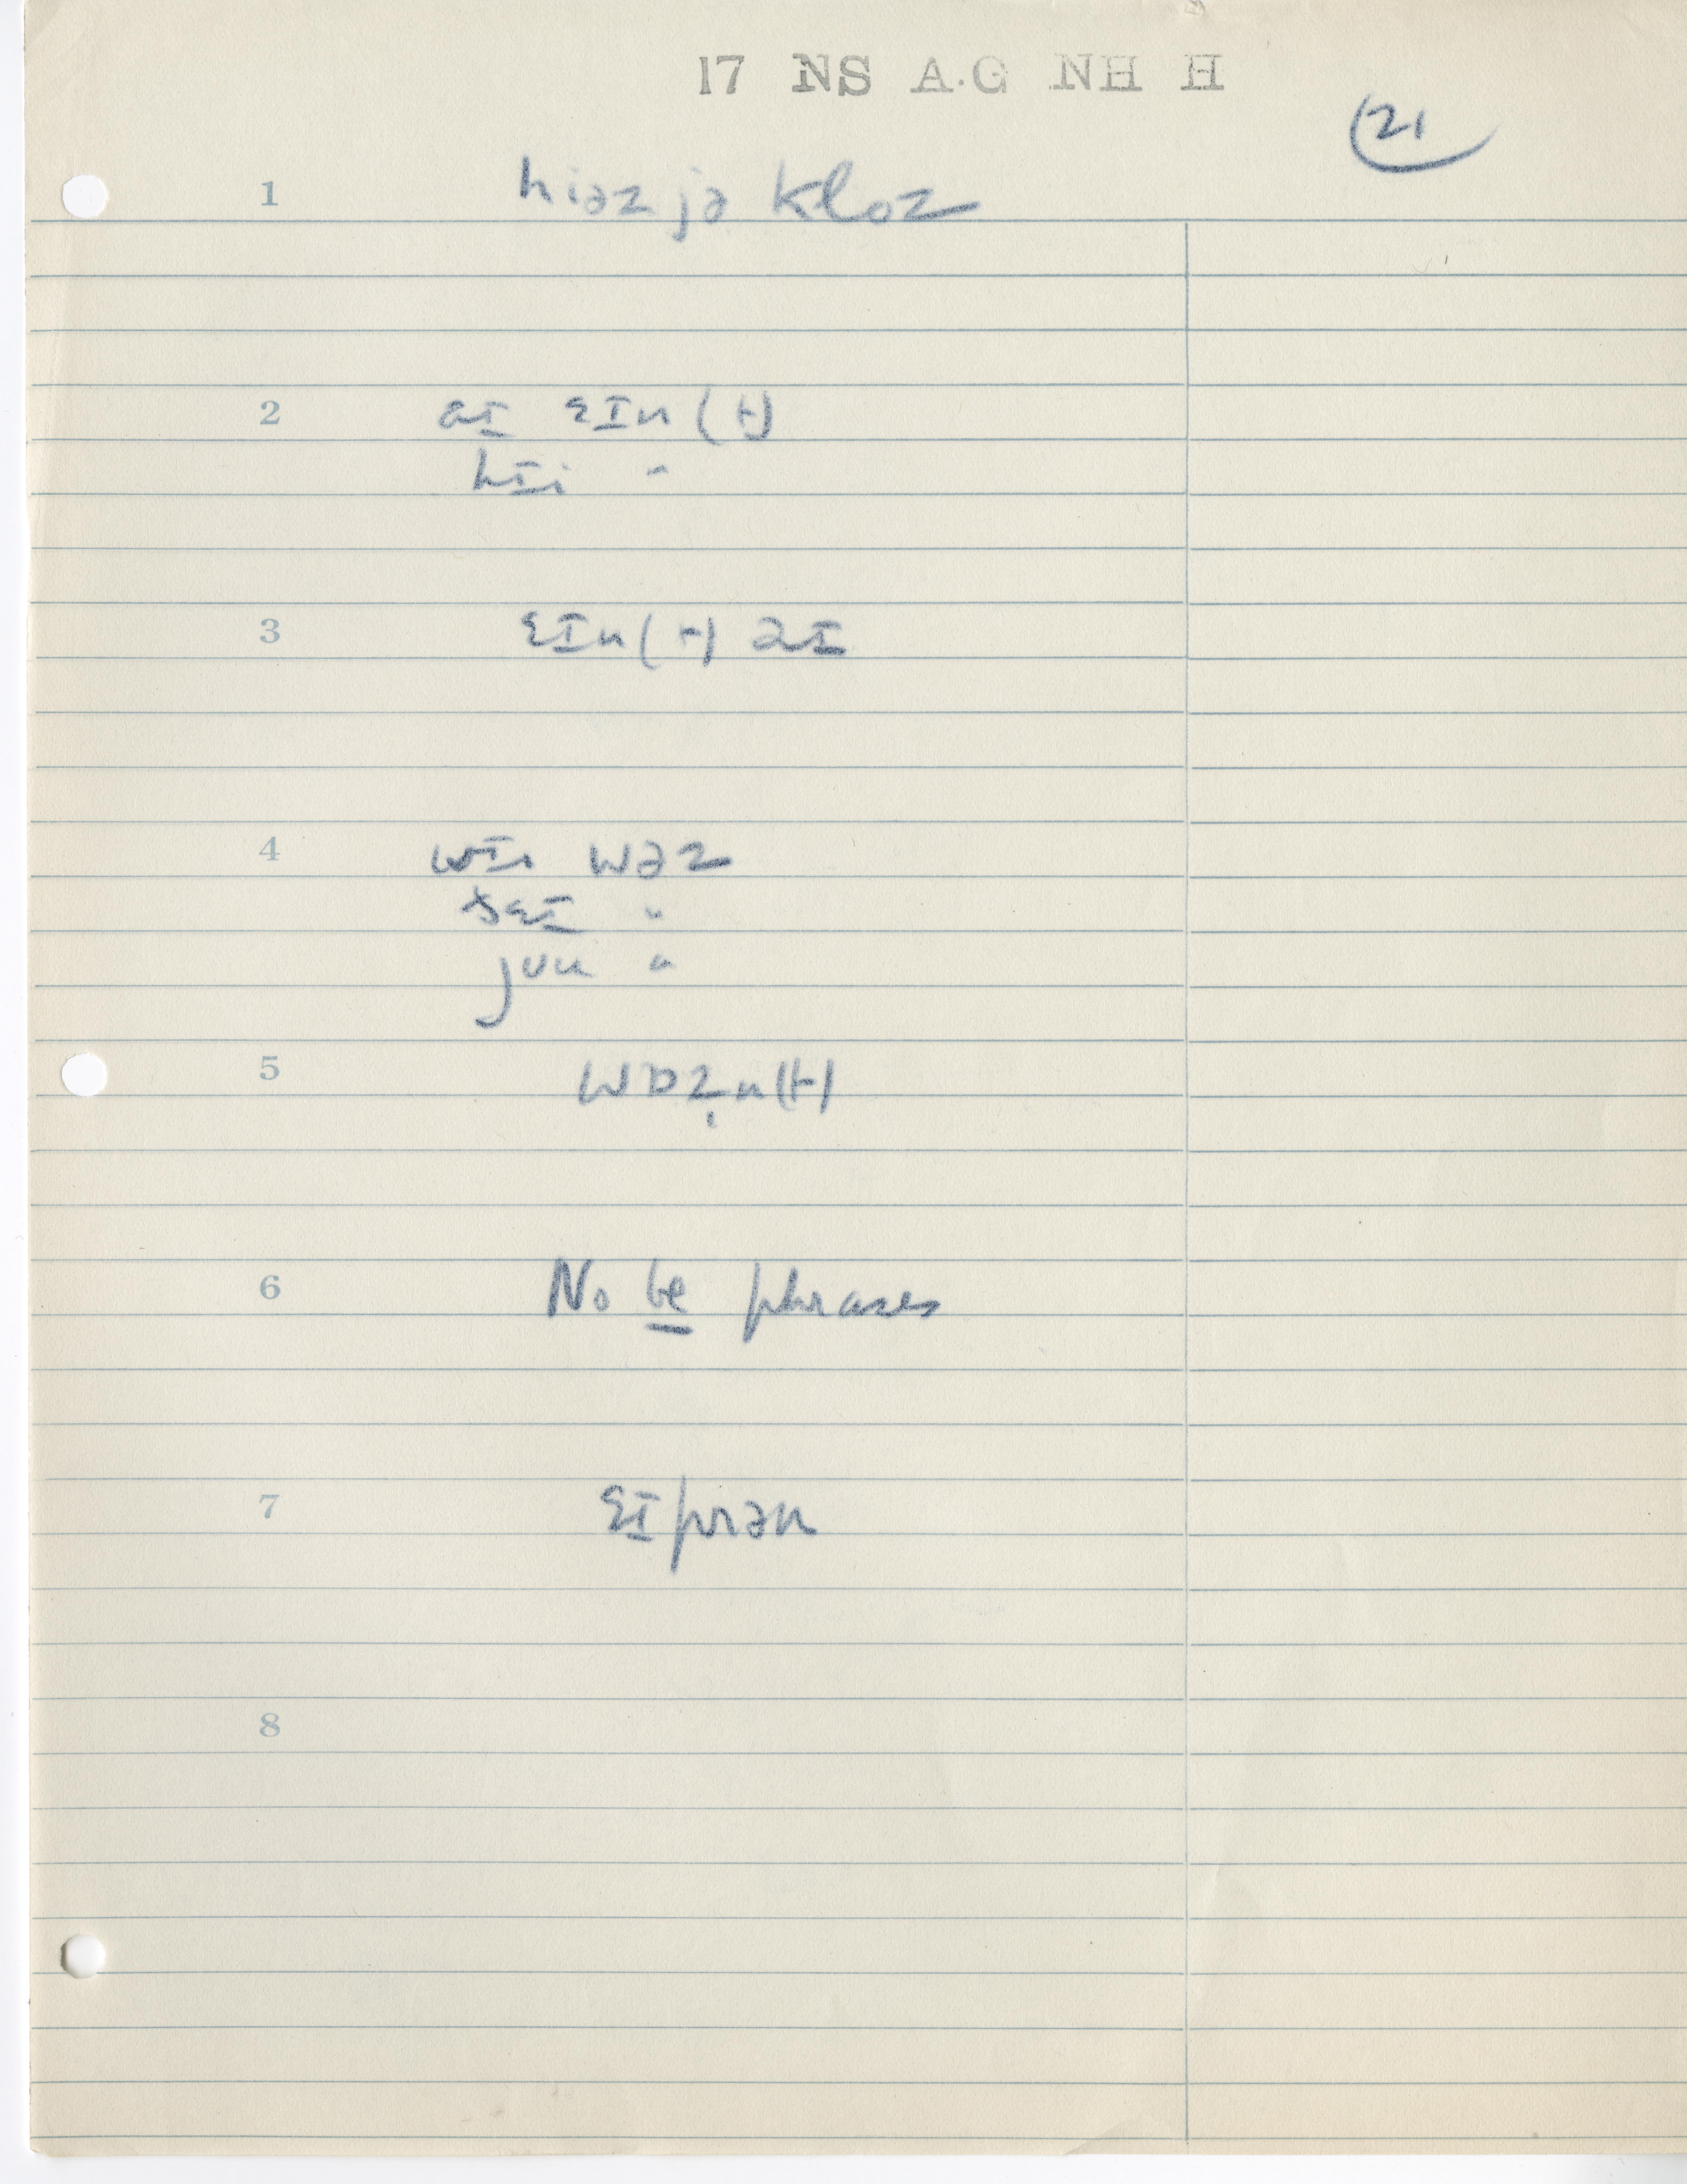 17 NS A·G NH H
21
1 hiəz jə kloz
2 aɪ ɛɪn (t)
hɪi "
3 ɛɪn (t) əɪ
4 wɪi wəz
ðɛɪ "
jʊu "
5 wɒẓn(t)
6 No be phrases
7 ɛɪprən
8